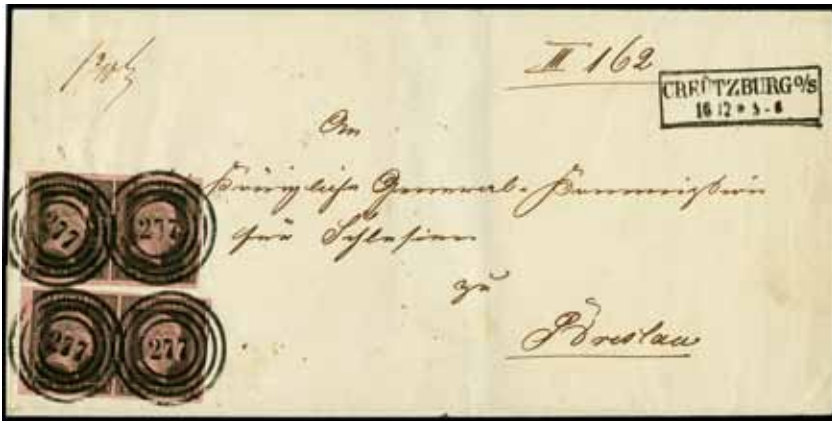 III 162
CREUTZBURG O/S
16 12 * 5-6
An
Königliche General-Kommission
für Schlesien
zu
Breslau
277 277
277 277